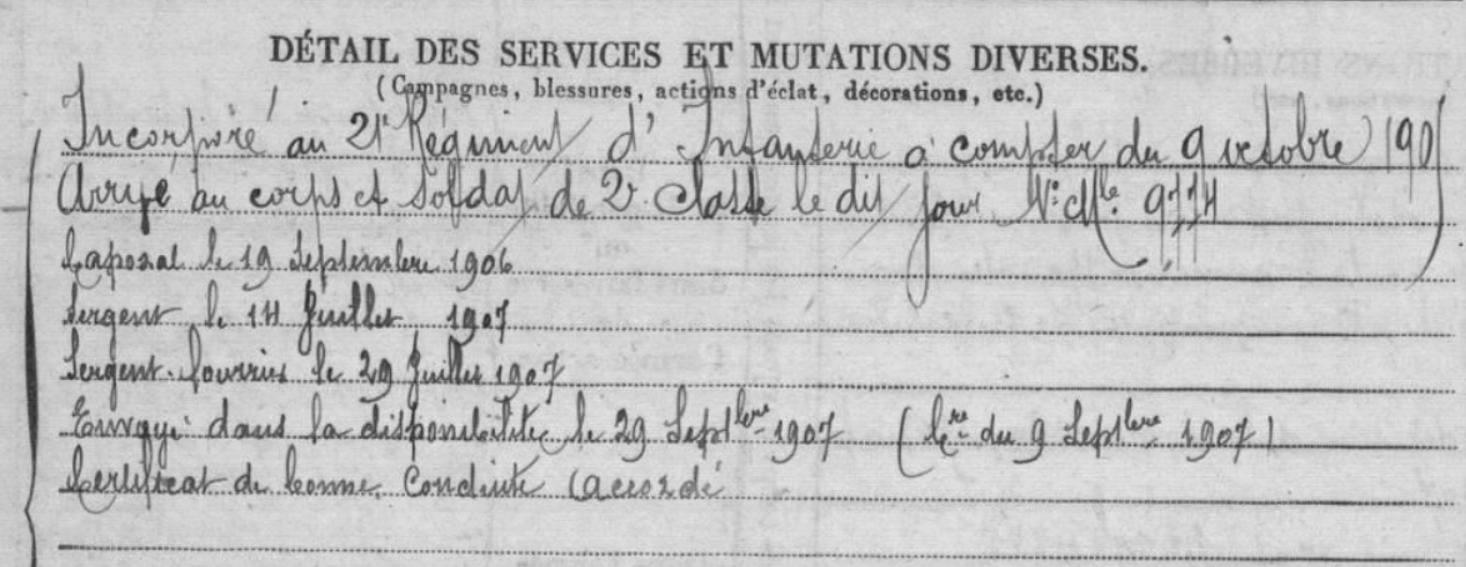 DÉTAIL DES SERVICES ET MUTATIONS DIVERSES.
(Campagnes, blessures, actions d'éclat, décorations, etc.)
Incorporé au 21e Régiment d'Infanterie à compter du 9 octobre 190
Arrivé au corps et soldat de 2e classe le dit jour N° Mle
Caporal le 19 Septembre 1906
Sergent le 14 Juillet 1907
Sergent fourrier le 29 Juillet 1907
Envoyé dans la disponibilité le 29 Septbre 1907 (Cre du 9 Septbre 1907)
Certificat de bonne Conduite accordé